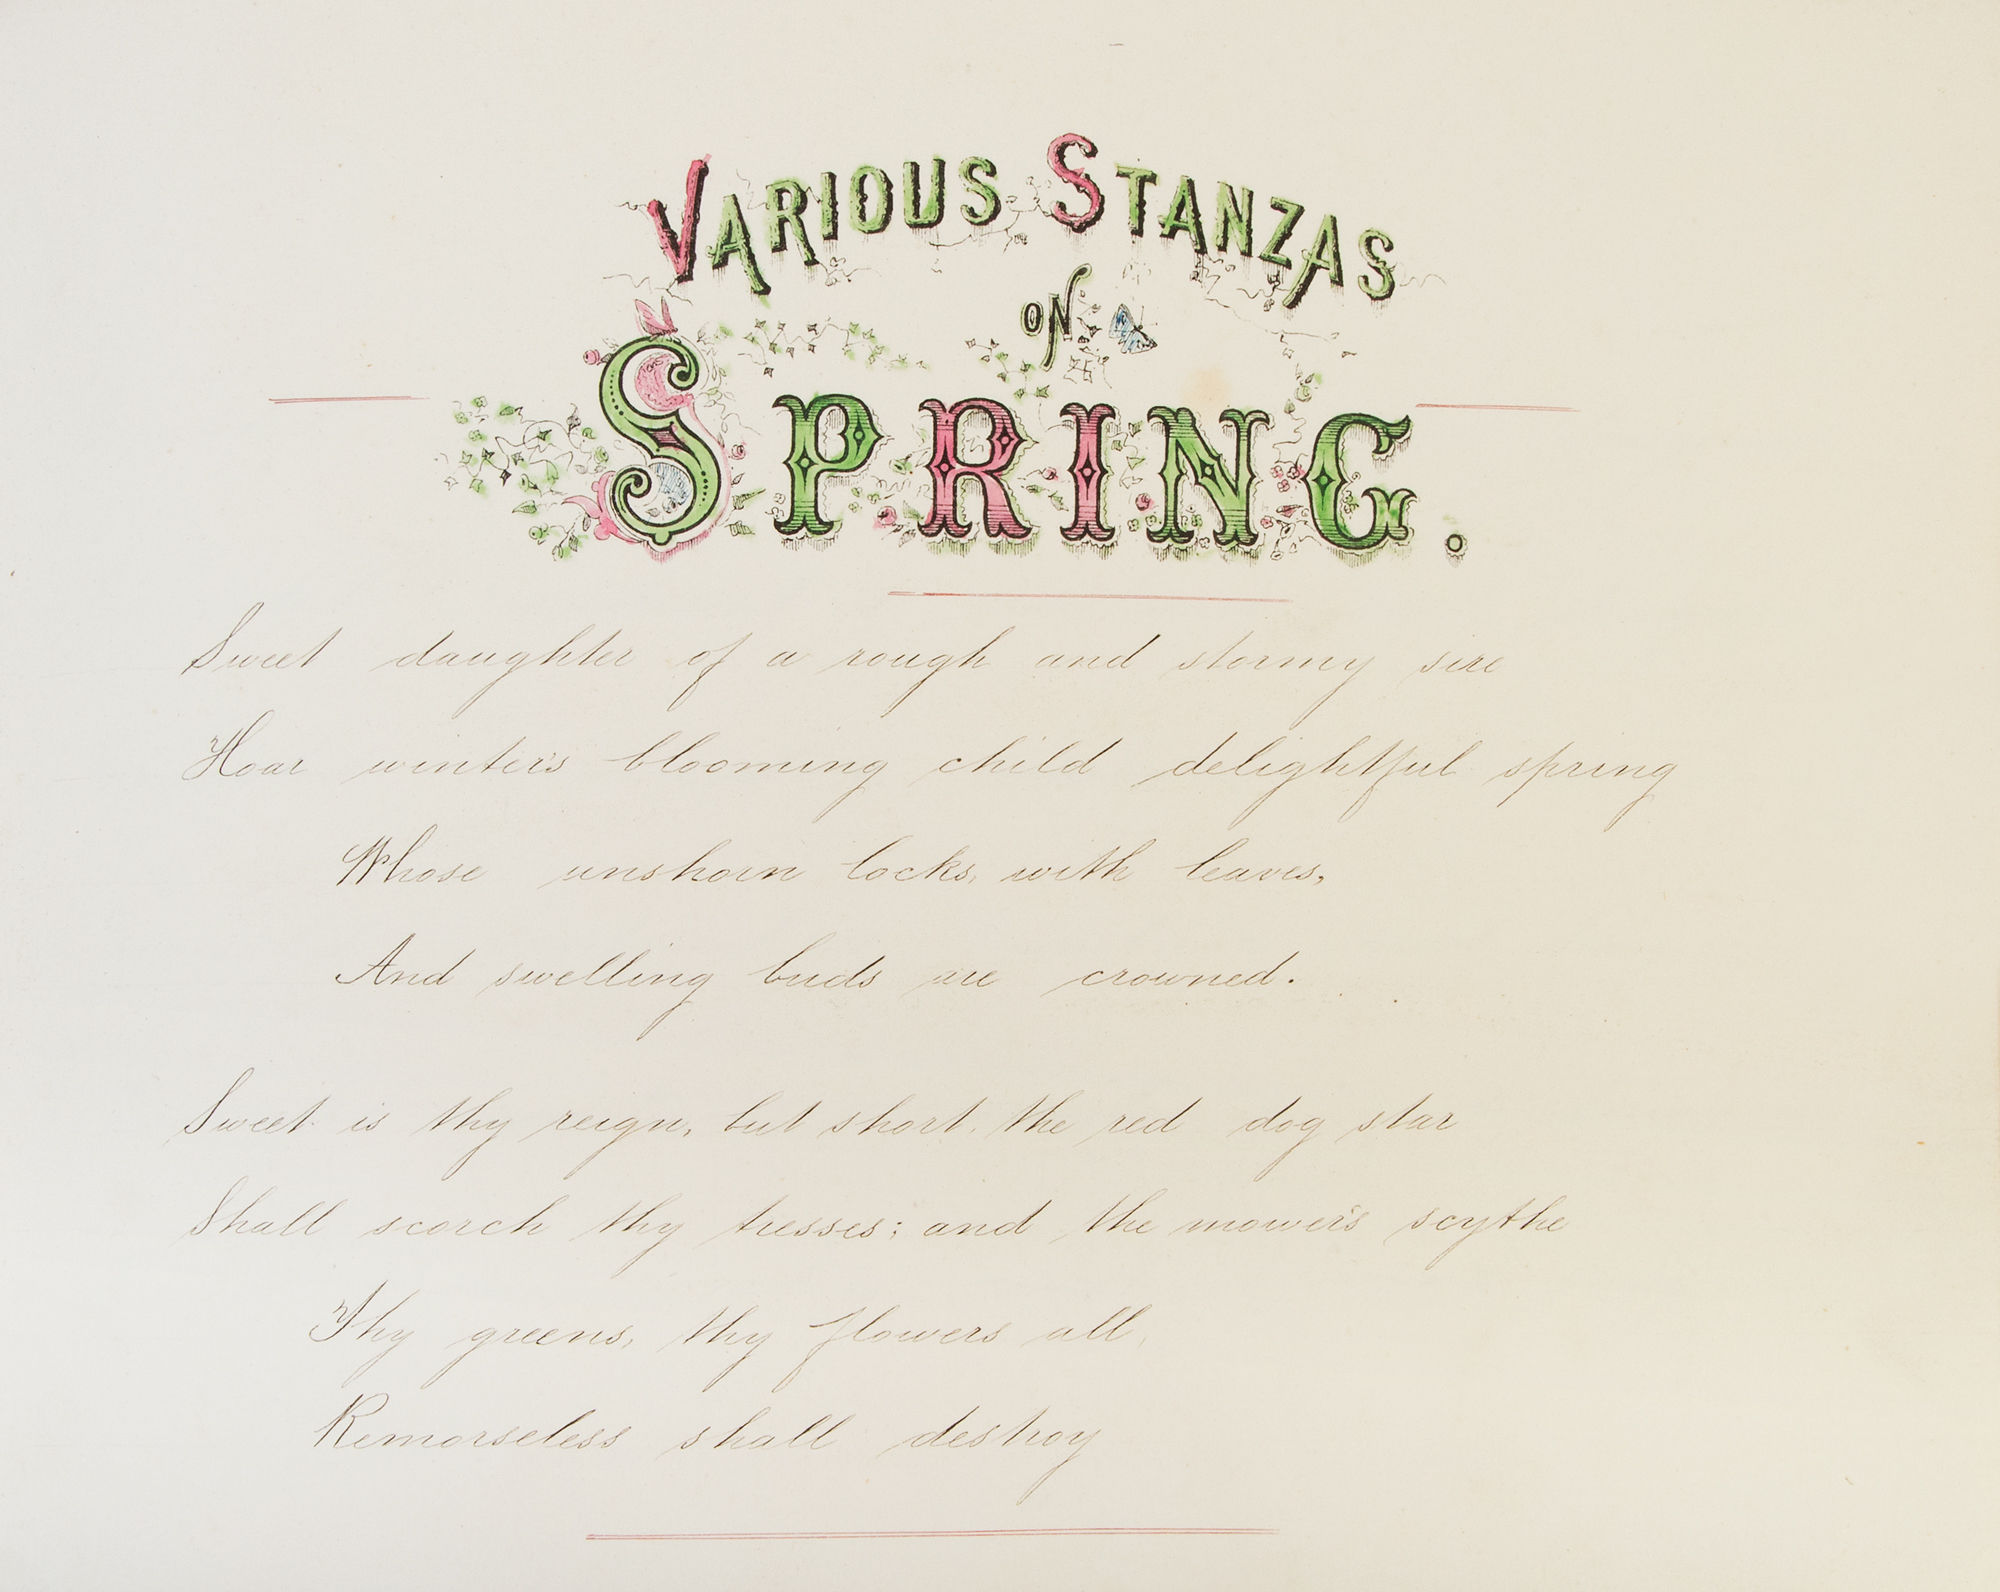 VARIOUS STANZAS
ON
SPRING.
Sweet daughter of a rough and stormy sire
Hoar winter's blooming child delightful spring
Whose unshorn locks, with leaves,
And swelling buds are crowned.
Sweet is thy reign, but short, the red dog star
Shall scorch thy tresses; and the mower's scythe
Thy greens, thy flowers all,
Remorseless shall destroy